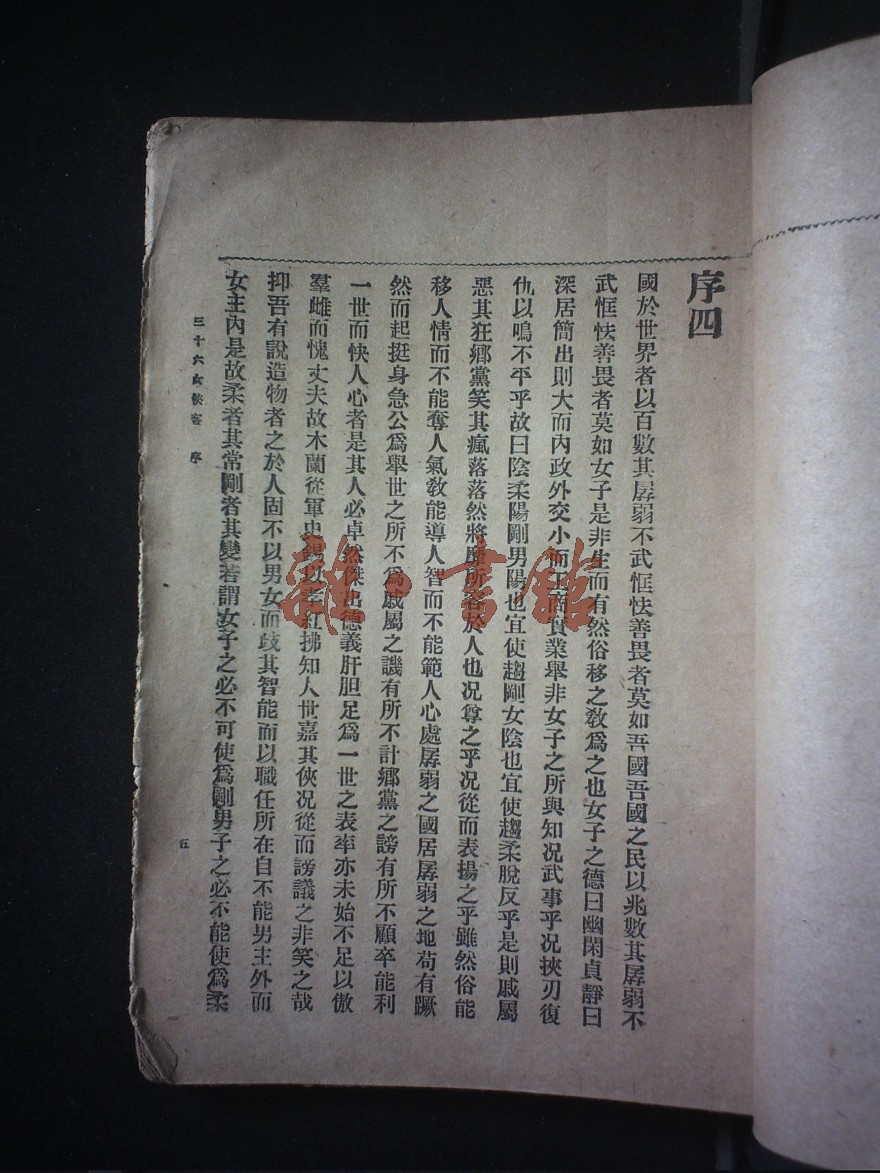 序四
國於世界者以百數其孱弱不武恇怯善畏者莫如吾國吾國之民以兆數其孱弱不
武恇怯善畏者莫如女子是非生而有然俗移之教爲之也女子之德曰幽閑貞靜曰
深居簡出則大而內政外交小而工商實業舉非女子之所與知况武事乎况挾刃復
仇以鳴不平乎故曰陰柔陽剛男陽也宜使趨剛女陰也宜使趨柔脫反乎是則戚屬
惡其狂鄉黨笑其瘋落落然將靡所容於人也况尊之乎况從而表揚之乎雖然俗能
移人情而不能奪人氣敎能導人智而不能範人心處孱弱之國居孱弱之地苟有蹶
然而起挺身急公爲舉世之所不爲戚屬之譏有所不計鄉黨之謗有所不顧卒能利
一世而快人心者是其人必卓然傑出德義肝胆足爲一世之表率亦未始不足以傲
羣雌而愧丈夫故木蘭從軍史錫以孝紅拂知人世嘉其俠况從而謗議之非笑之哉
抑吾有說造物者之於人固不以男女而歧其智能而以職任所在自不能男主外而
女主內是故柔者其常剛者其變若謂女子之必不可使爲剛男子之必不能使爲柔
三十六女俠客 序
五
雜書館